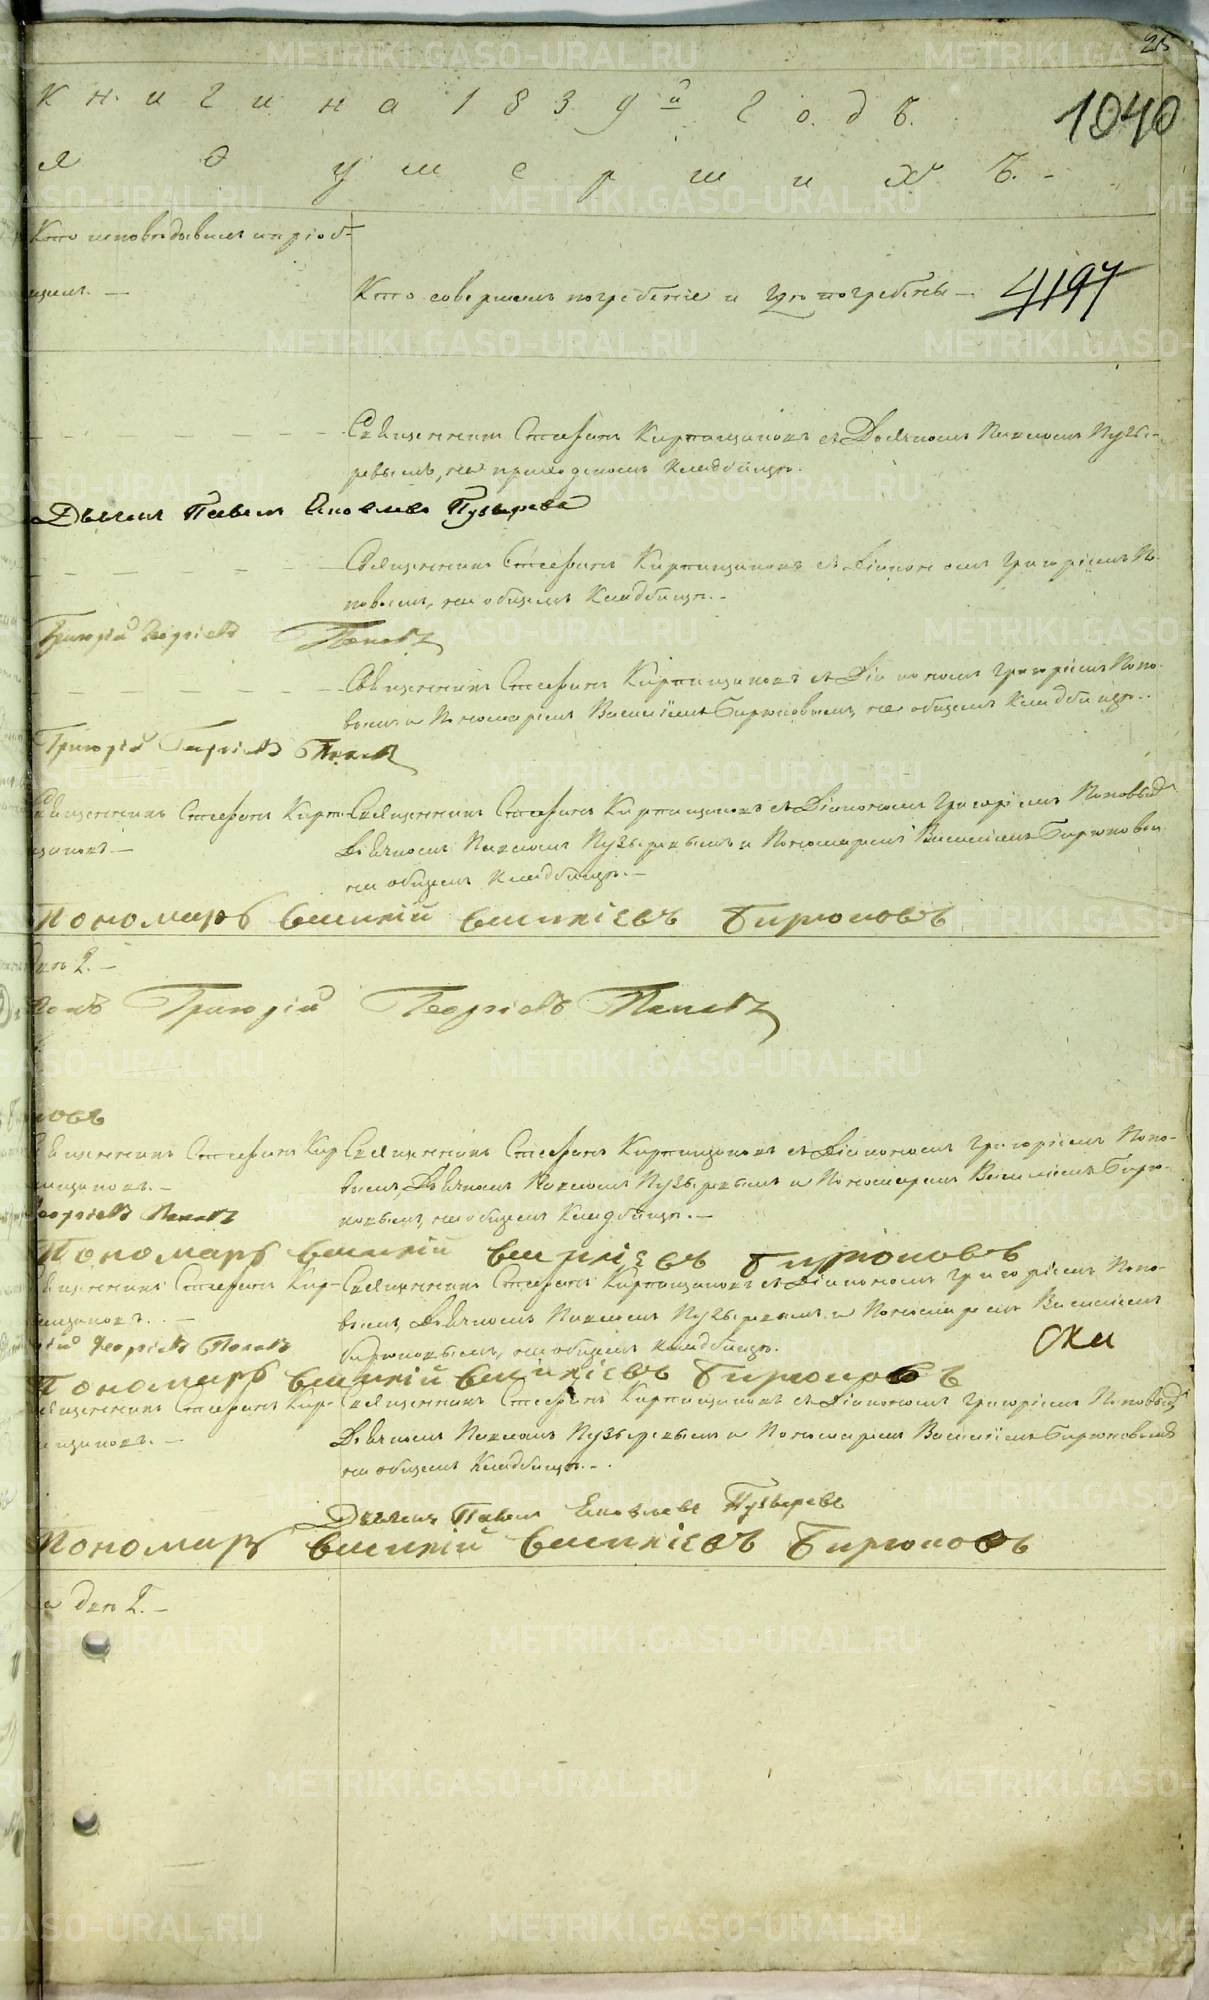 25
К н и г и н а 1 8 3 9й г о д ъ.
1040
я о у м е р ш и х ъ. -
Кто исповѣдывалъ и пріоб-
щалъ. —
Кто совершалъ погребеніе и гдѣ погребены —
4197
Священникъ Стефанъ Кирпищиковъ съ Дьячкомъ Павломъ Пузы-
ревымъ, на приходскомъ кладбищѣ.
Дьячекъ Павелъ Яковлевъ Пузыревъ
Священникъ Стефанъ Кирпищиковъ съ Діакономъ Григоріемъ По-
повымъ, на общемъ кладбищѣ. -
Григорій Георгіевъ Поповъ
Священникъ Стефанъ Кирпищиковъ съ Діакономъ Григоріемъ Попо-
вымъ и Пономаремъ Василіемъ Бирюковымъ, на общемъ кладбищѣ. -
Григорій Георгіевъ Поповъ
Священникъ Стефанъ Кирпи-
щиковъ. —
Священникъ Стефанъ Кирпищиковъ съ Діакономъ Григоріемъ Поповымъ
Дьячкомъ Павломъ Пузыревымъ и Пономаремъ Василіемъ Бирюковым
на общемъ кладбищѣ. -
Пономарь Василій Василіевъ Бирюковъ
Григорій Георгіевъ Поповъ
ковъ
Священникъ Стефанъ Кир
пищиковъ. —
Священникъ Стефанъ Кирпищиковъ съ Діакономъ Григоріемъ Попо-
вымъ, Дьячкомъ Павломъ Пузыревымъ и Пономаремъ Василіемъ Бирю-
ковымъ, на общемъ кладбищѣ. —
Георгіевъ Поповъ
Пономарь Василій Василіевъ Бирюковъ
Священникъ Стефанъ Кир-
пищиковъ. -
Священникъ Стефанъ Кирпищиковъ съ Діакономъ Григоріемъ Попо-
вымъ, Дьячкомъ Павломъ Пузыревымъ и Пономаремъ Василіемъ
Бирюковымъ, на общемъ кладбищѣ.
рій Георгіевъ Поповъ
Оки
Пономарь Василій Василіевъ Бирюковъ
Священникъ Стефанъ Кир-
пищиковъ. —
Священникъ Стефанъ Кирпищиковъ съ Діакономъ Григоріемъ Поповымъ
Дьячкомъ Павломъ Пузыревымъ и Пономаремъ Василіемъ Бирюковымъ
на общемъ кладбищѣ. -
Дьячекъ Павелъ Яковлевъ Пузыревъ
Пономарь Василій Василіевъ Бирюковъ
METRIKI.GASO-URAL.RU